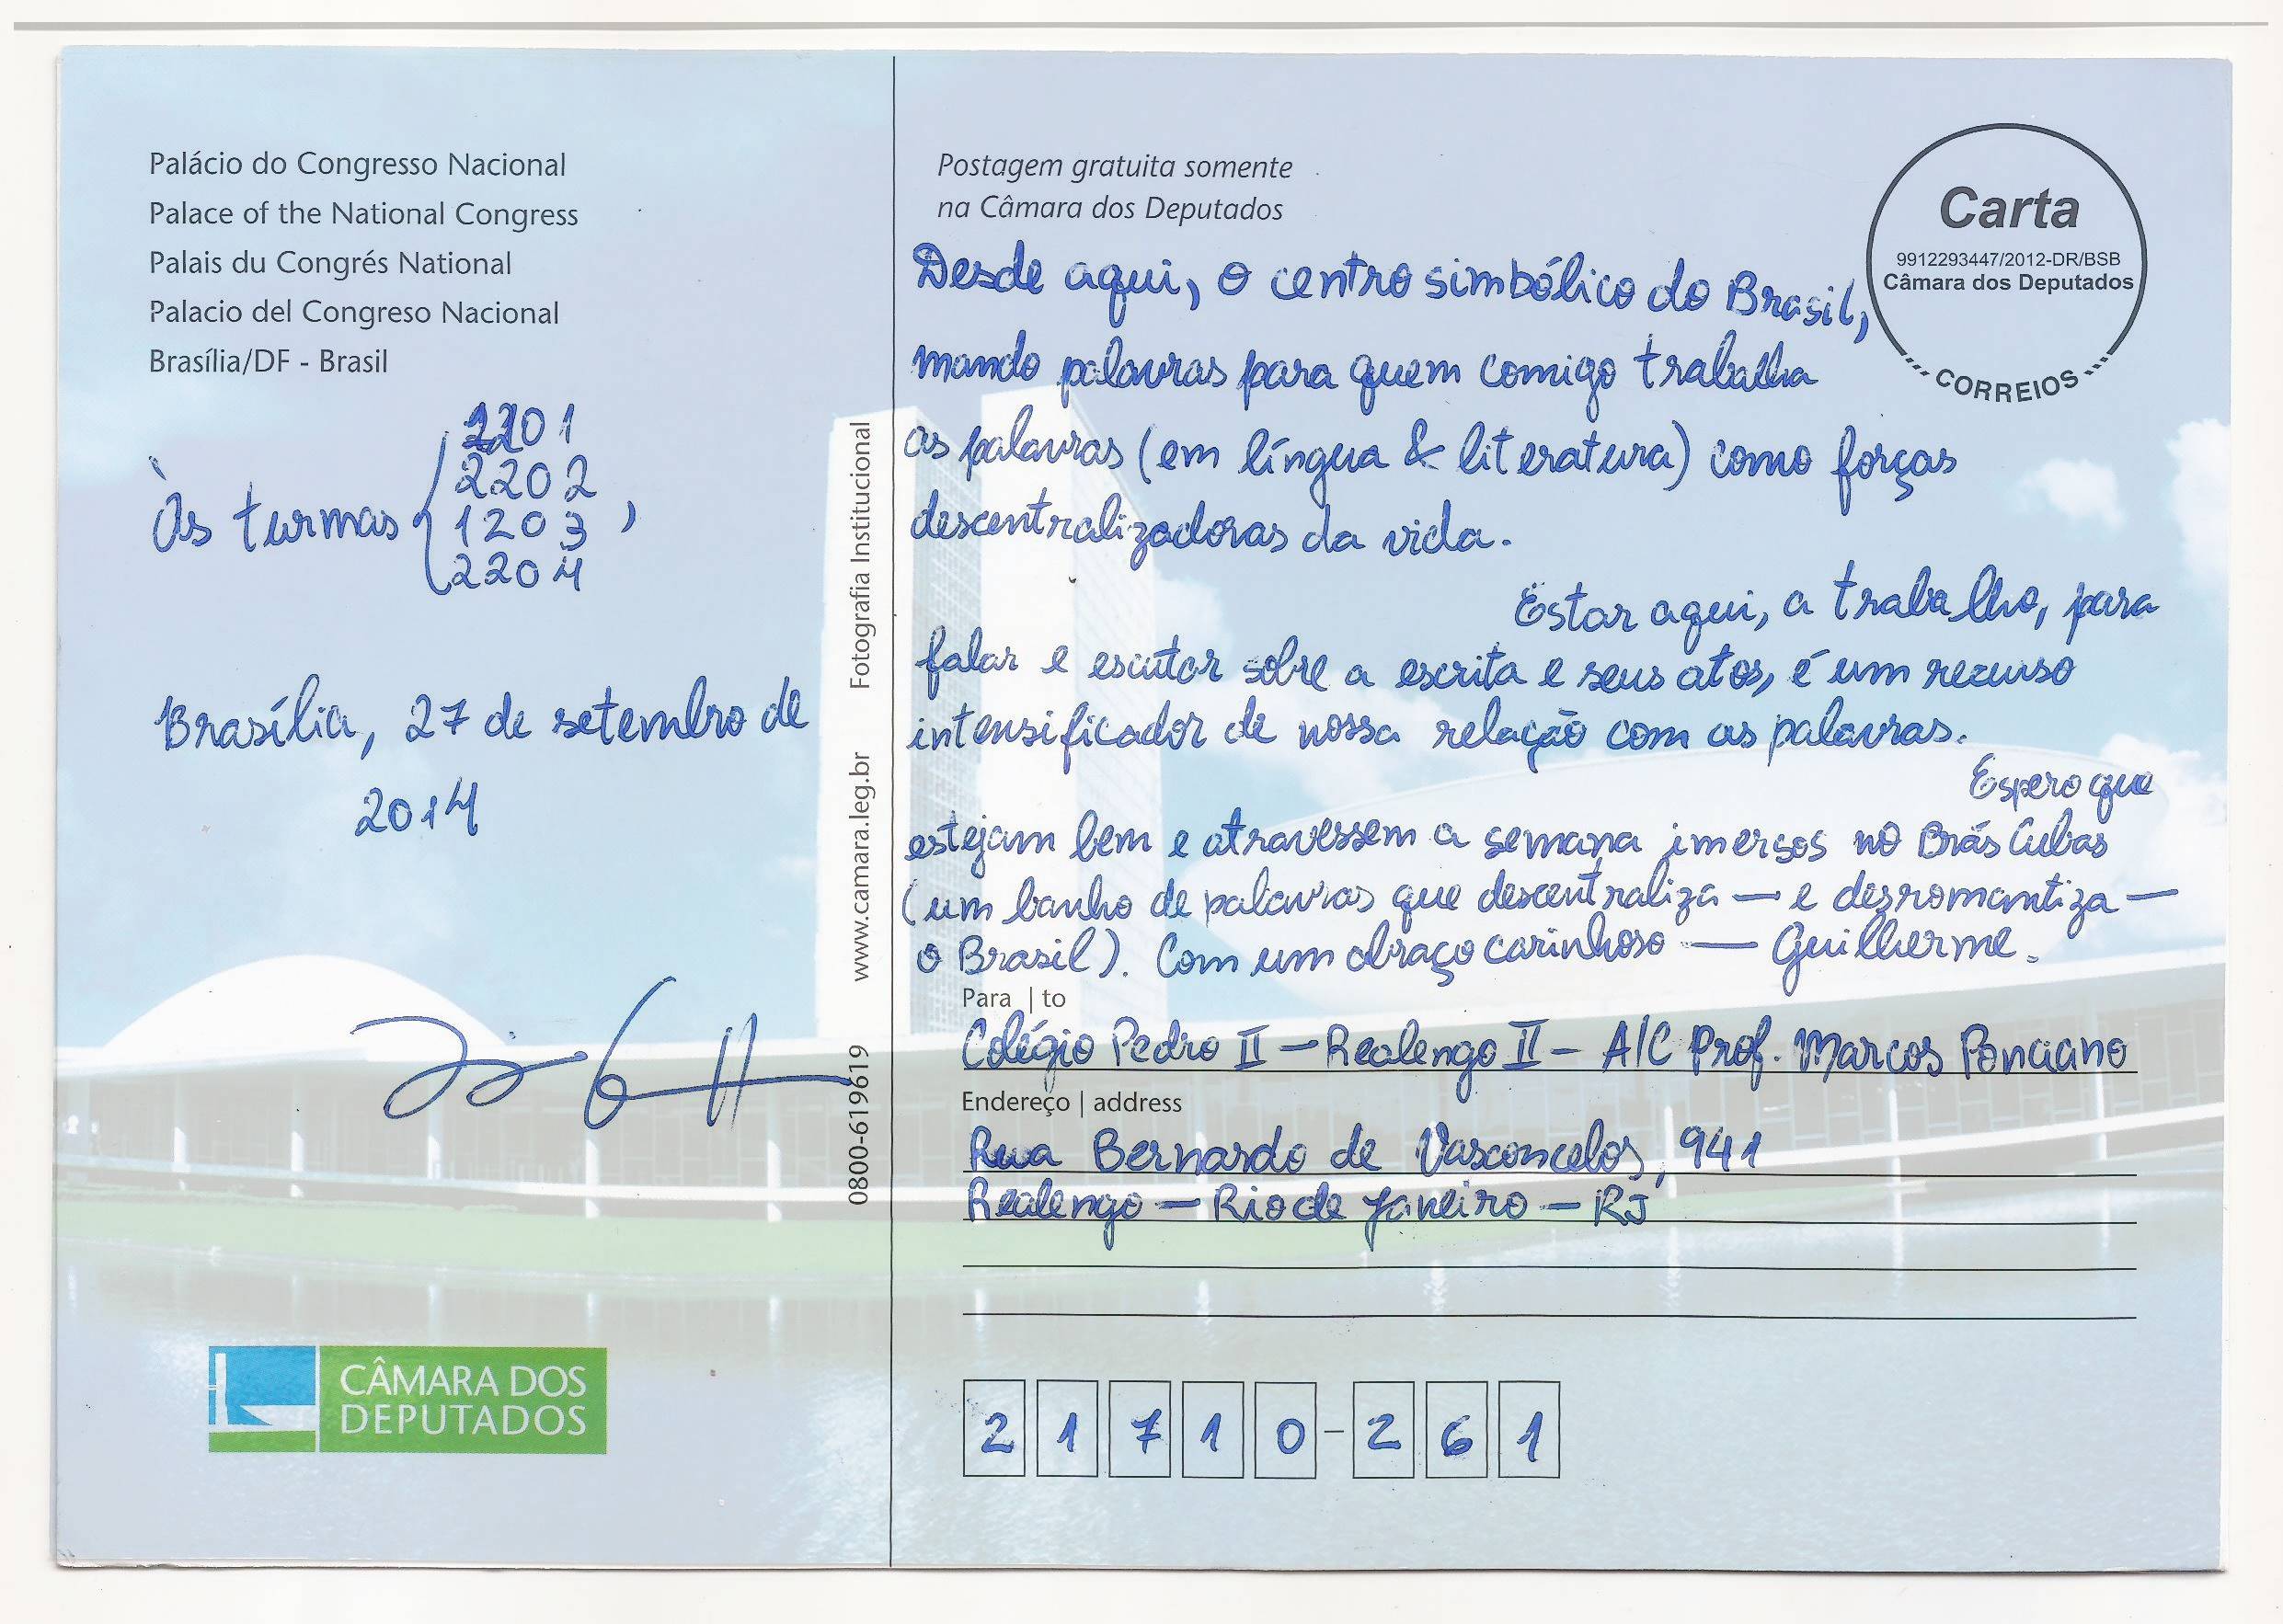 Palácio do Congresso Nacional
Palace of the National Congress
Palais du Congrés National
Palacio del Congreso Nacional
Brasília/DF - Brasil
Às turmas
2201
2202
1203
2204
,
Brasília, 27 de setembro de
2014
CÂMARA DOS
DEPUTADOS
0800-619619 www.camara.leg.br Fotografia Institucional
Postagem gratuita somente
na Câmara dos Deputados
Carta
9912293447/2012-DR/BSB
Câmara dos Deputados
CORREIOS
Desde aqui, o centro simbólico do Brasil,
mando palavras para quem comigo trabalha
as palavras (em língua & literatura) como forças
descentralizadoras da vida.
Estar aqui, a trabalho, para
falar e escutar sobre a escrita e seus atos, é um recurso
intensificador de nossa relação com as palavras.
Espero que
estejam bem e atravessem a semana imersos no Brás Cubas
(um banho de palavras que descentraliza — e desromantiza —
o Brasil). Com um abraço carinhoso — Guilherme.
Para | to
Colégio Pedro II — Realengo II — A/C Prof. Marcos Ponciano
Endereço | address
Rua Bernardo de Vasconcelos, 941
Realengo — Rio de Janeiro — RJ
21710-261